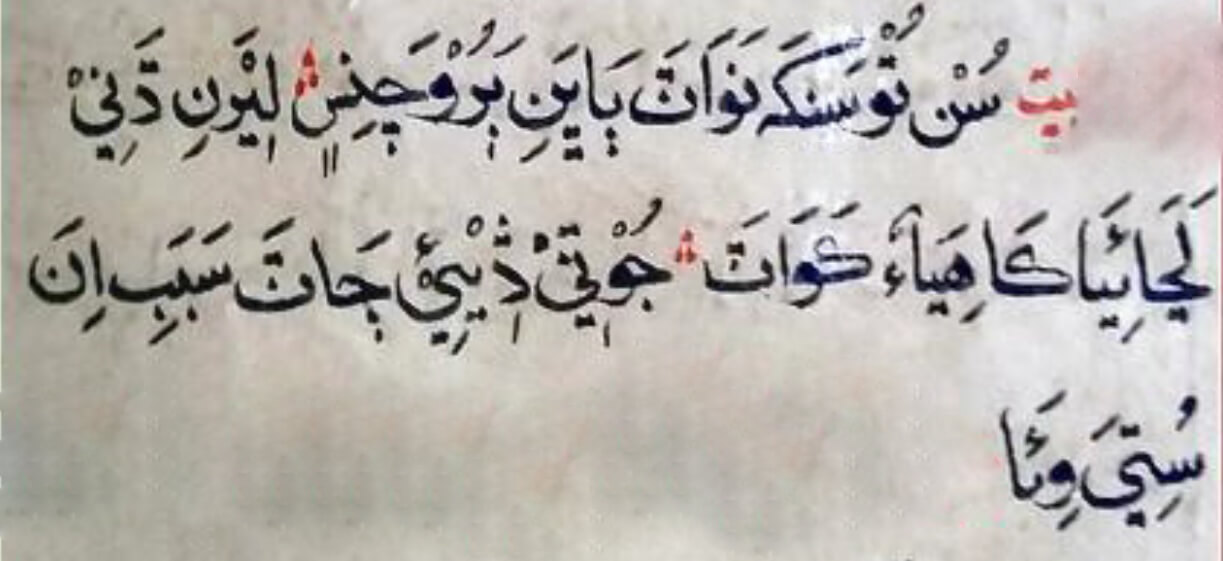 بيت سُنْ تُوْ سَنکَہ نَوَاتَ بَايَنِ بَرُوْچَنِسٍ ؞ لِيْرُنِ دَّنِيْ
لَجَائِيَا کَا هِيَاءَ کَوَاتَ ؞ جُوْتِيْ ڎِيْئِيْ جَاتَ سَبَبِ اِنَ
سُتِيَ وِئَا